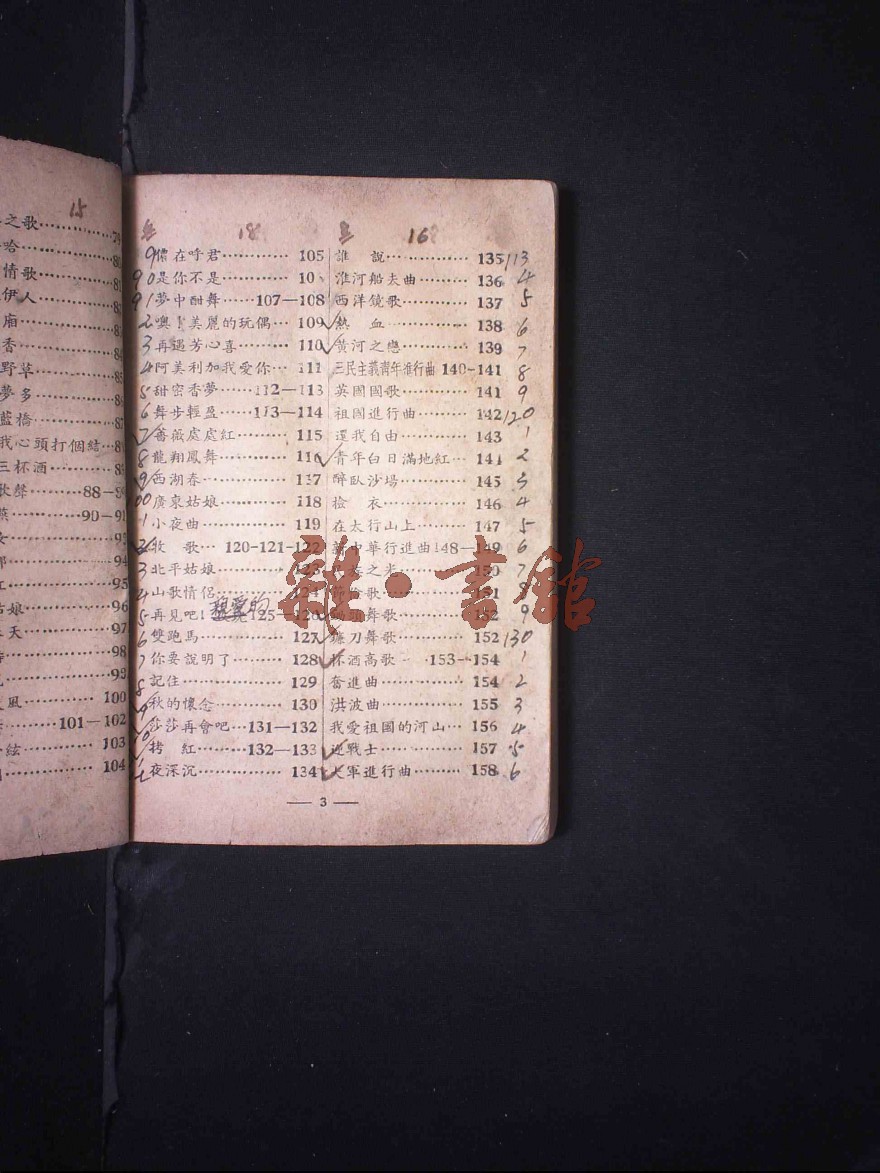 15
之歌
哈
情歌
伊人
廂
香
野草
夢多
藍橋
我心頭打個結
三杯酒
歌聲………88—
燕………90—91
94
95
姑娘………96
天………97
99
風………100
101—102
絃………103
104
18
儂在呼君…………105
90是你不是…………10
91夢中酣舞……107—108
2噢!美麗的玩偶…109
3再遇芳心喜………110
4阿美利加我愛你…111
5甜密香夢……112—113
6舞步輕盈……113—114
7薔薇處處紅………115
8龍翔鳳舞…………116
9西湖春……………117
100廣東姑娘…………118
1小夜曲……………119
2牧 歌…120-121-122
3北平姑娘…………123
4山歌情侶…………124
5再見吧!親愛的 125—126
6雙跑馬……………127
7你要說明了………128
8記住………………129
9秋的懷念…………130
10莎莎再會吧…131—132
拷 紅………132—133
夜深沉……………134
16
誰 說…………135 113
淮河船夫曲………136 4
西洋鏡歌…………137 5
熱 血…………138 6
黃河之戀…………139 7
三民主義青年進行曲 140-141 8
英國國歌…………141 9
祖國進行曲………142 120
還我自由…………143 1
青年白日滿地紅…144 2
醉臥沙場…………145 3
檢 衣…………146 4
在太行山上………147 5
新中華行進曲148—149 6
之光…………150 7
151 8
舞歌…………152 9
鐮刀舞歌…………152 130
杯酒高歌… 153—154 1
奮進曲……………154 2
洪波曲……………155 3
我愛祖國的河山…156 4
迎戰士……………157 5
大軍進行曲………158 6
— 3 —
雜·書館